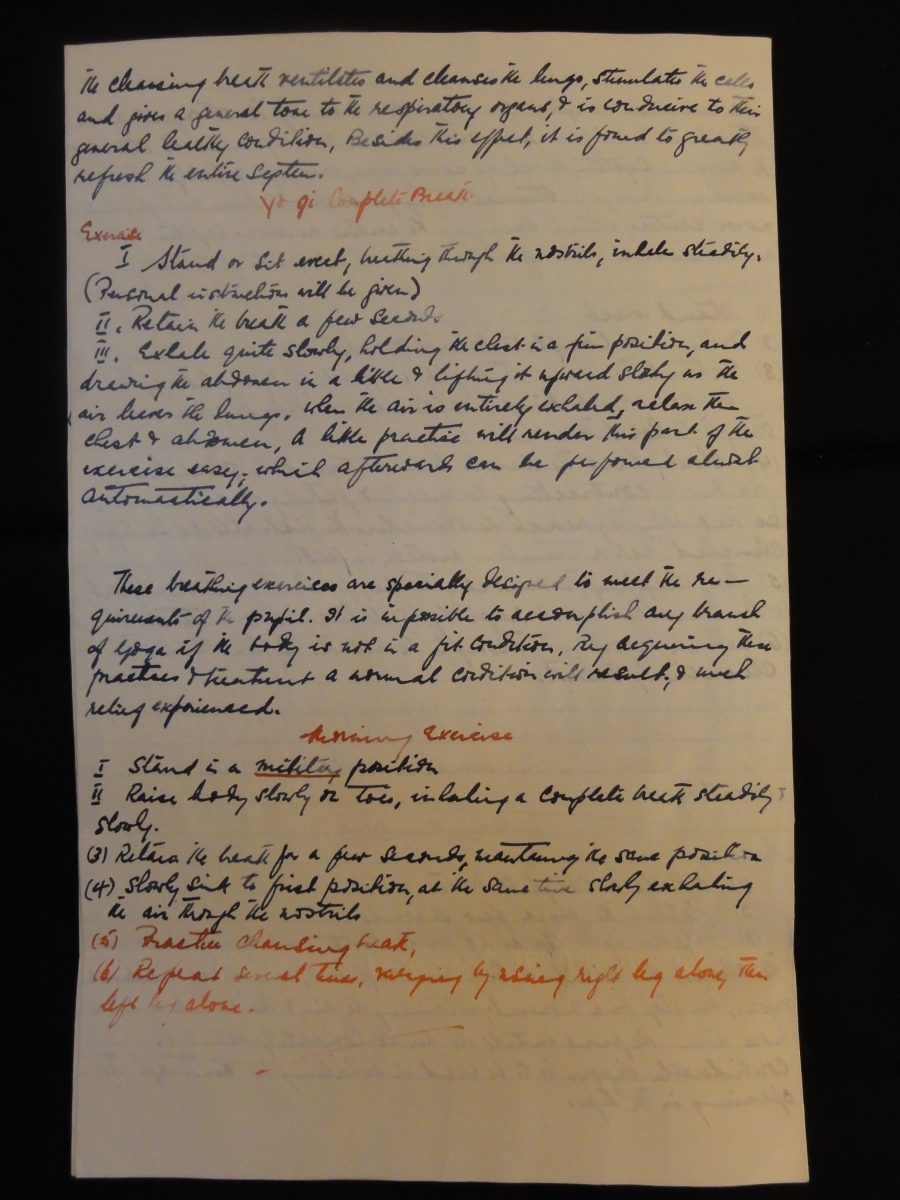 The cleansing breath ventilates and cleanses the lungs, stimulates the cells
and gives a general tone to the respiratory organs, & is conducive to their
general healthy condition, Besides this effect, it is found to greatly
refresh the entire System.
Yo gi Complete Breath.
Exercise
I Stand or Sit erect, breathing through the nostrils, inhale steadily.
(Personal instructions will be given)
II. Retain the breath a few seconds
III. Exhale quite slowly, holding the chest in a firm position, and
drawing the abdomen in a little & lifting it upward slowly as the
air leaves the lungs. When the air is entirely exhaled, relax the
chest & abdomen, A little practice will render this part of the
exercise easy, which afterwards can be performed almost
automatically.
These breathing exercises are specially designed to meet the re-
quirements of the pupil. It is impossible to accomplish any branch
of yoga if the body is not in a fit condition, By acquiring these
practices & treatment a normal condition will result, & much
relief experienced.
Morning Exercise
I Stand in a military position
II Raise body slowly on toes, inhaling a complete breath steadily &
slowly.
(3) Retain the breath for a few seconds, maintaining the same position
(4) Slowly sink to first position, at the same time slowly exhaling
the air through the nostrils
(5) Practice cleansing breath,
(6) Repeat several times, varying by using right leg alone, then
left leg alone.